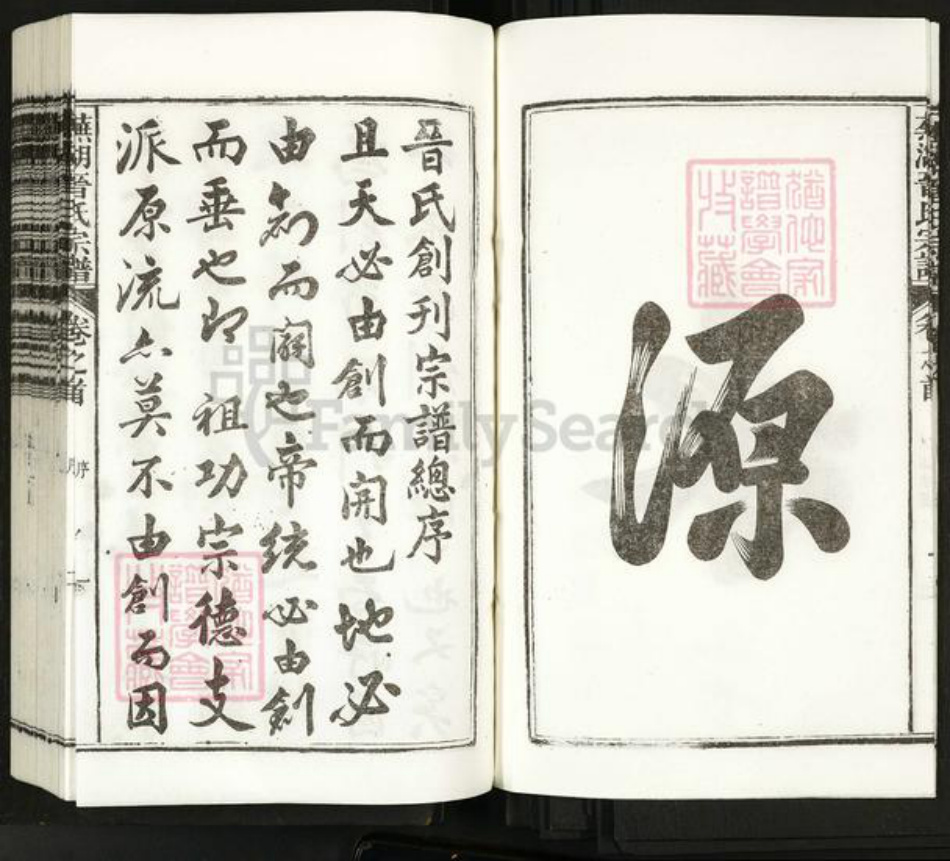 源
晉氏創刊宗譜總序
且天必由創而開也地必
由創而闢也帝統必由創
而垂也即祖功宗德支
派原流亦莫不由創而因
蕪湖晉氏宗譜
卷之首
序
猶他家譜學會收藏
猶他家譜學會收藏
FamilySearch